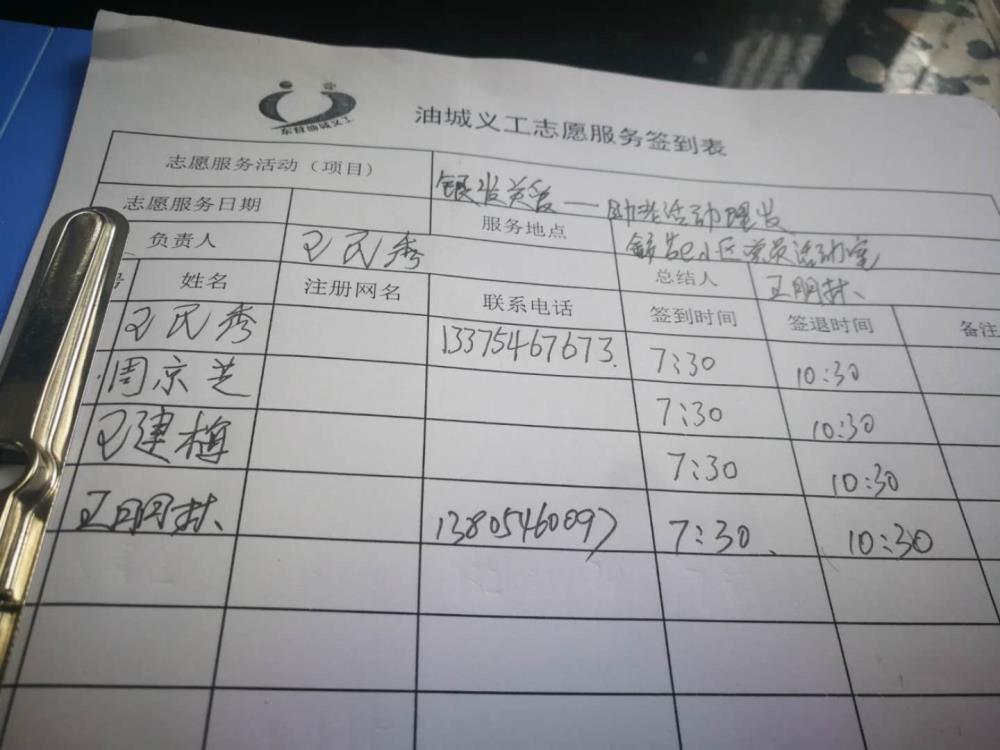 东营油城义工
油城义工志愿服务签到表
志愿服务活动（项目） 银发关爱——助老活动理发
志愿服务日期 服务地点 小区党员活动室
负责人 王民秀 总结人 王明林
号 姓名 注册网名 联系电话 签到时间 签退时间 备注
王民秀 13375467673. 7:30 10:30
周京芝 7:30 10:30
王建梅 7:30 10:30
王明林 13805460097 7:30 10:30